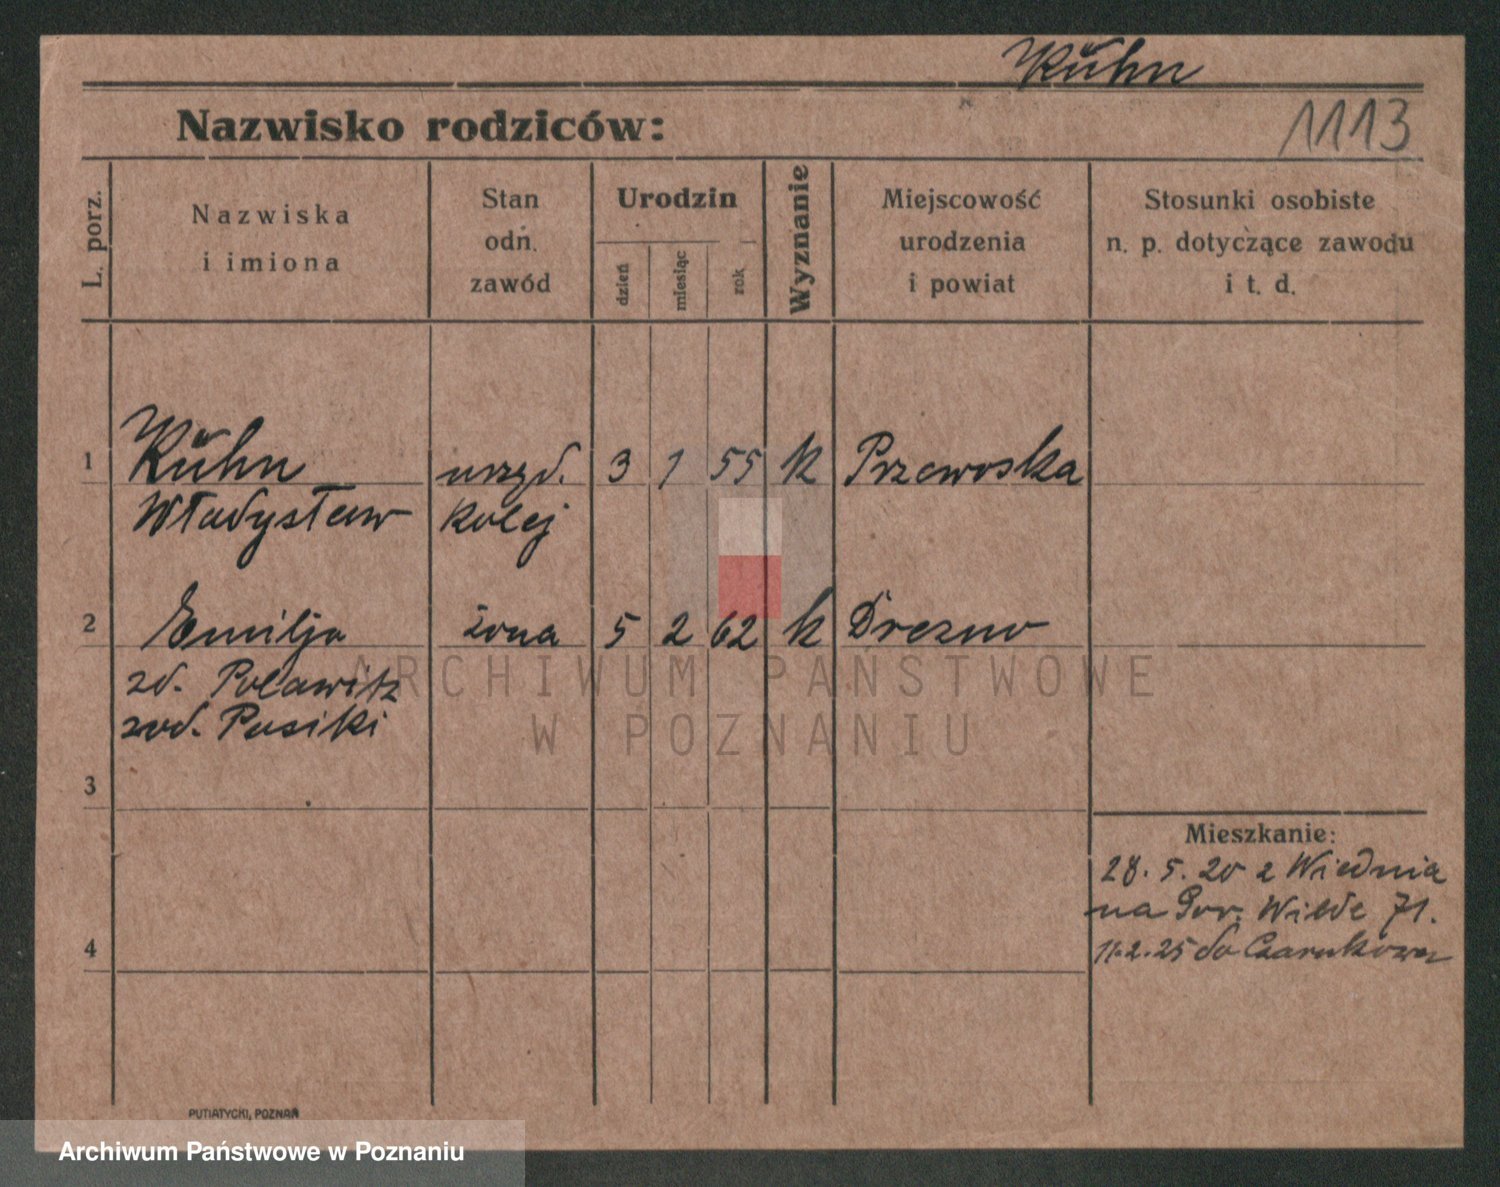 Kühn
1113
Nazwisko rodziców:
L. porz.
Nazwiska
i imiona
Stan
odn.
zawód
Urodzin
dzień
miesiąc
rok
Wyznanie
Miejscowość
urodzenia
i powiat
Stosunki osobiste
n. p. dotyczące zawodu
i t. d.
1 Kühn urzęd. 3 1 55 k Przewoska
Władysław kolej
2 Emilja żona 5 2 62 k Drezno
zd. Polawitz
rod. Pusiki
3
Mieszkanie:
28. 5. 20 z Wiednia
na Gór. Wilde 71.
4
11.2.25 do Czarnkowa
ARCHIWUM PAŃSTWOWE
W POZNANIU
PUTIATYCKI, POZNAŃ
Archiwum Państwowe w Poznaniu